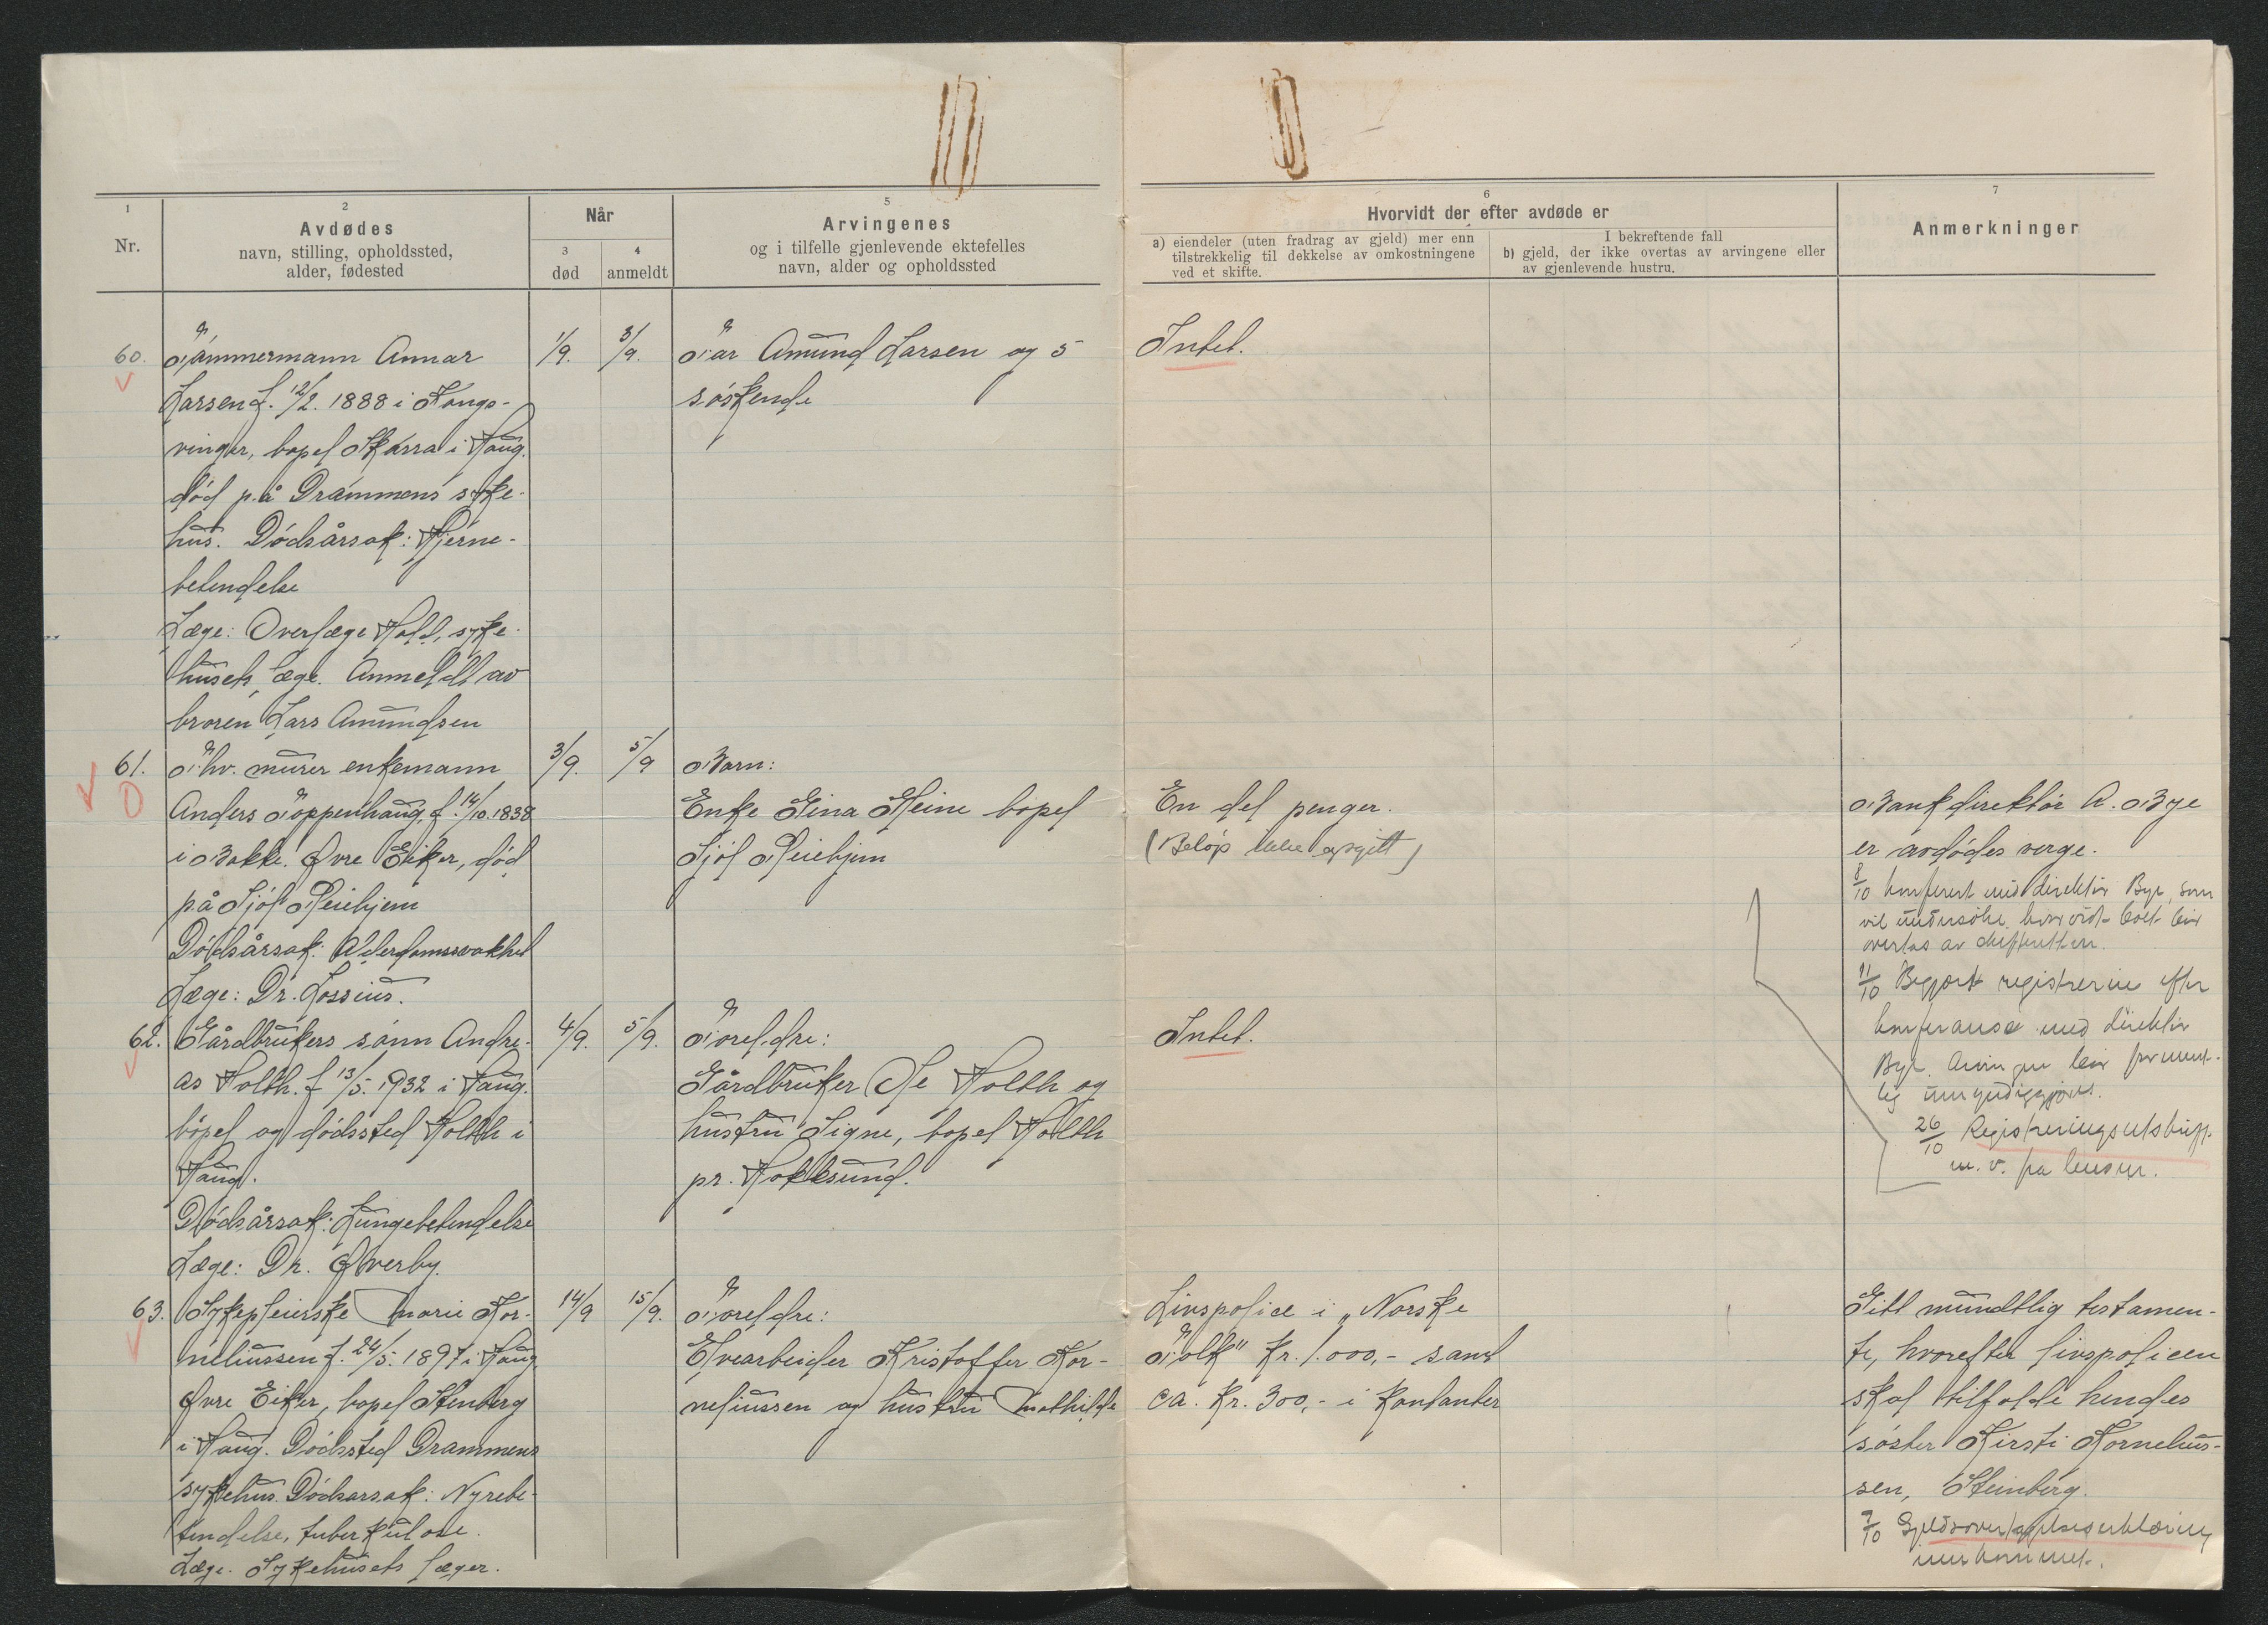 1
Nr.
2
Avdødes
navn, stilling, opholdssted,
alder, fødested
Når
3
død
4
anmeldt
5
Arvingenes
og i tilfelle gjenlevende ektefelles
navn, alder og opholdssted
6
Hvorvidt der efter avdøde er
a) eiendeler (uten fradrag av gjeld) mer enn
tilstrekkelig til dekkelse av omkostningene
ved et skifte.
I bekreftende fall
b) gjeld, der ikke overtas av arvingene eller
av gjenlevende hustru.
7
Anmerkninger
60.
Tømmermann Annar
Larsen f. 12/2. 1888 i Kongs-
vinger, bopel Skarra i Haug.
død på Drammens syke-
hus. Dødsårsak: Hjerne-
betendelse
Læge: Overlæge Hold, syke-
husets læge. Anmeldt av
broren Lars Amundsen
1/9.
3/9.
Far Amund Larsen og 5
søskende
Intet.
61.
Fhv. murer enkemann
Anders Toppenhaug, f. 14/10. 1838
i Bakke. Øvre Eiker, død
på Sjøl Pleiehjem
Dødsårsak: Alderdomssvakhet
Læge: Dr. Lossius.
3/9.
5/9
Barn:
Enke Gina Steine bopel
Sjøl Pleiehjem
En del penger.
(Beløp ikke opgitt)
Bankdirektør A. Bye
er avdødes verge.
8/10 konferert med direktør Bye, som
vil undersøke hvorvidt boet blir
overtas av
11/10 Begjært registrering efter
konferanse med direktør
Bye. Arvingen blir forment-
lig umyndiggjort.
26/10 Registreringsutskrift
m. v. fra lensm.
62.
Gårdbrukers sønn Andre-
as Holth. f 13/5. 1932 i Haug.
bopel og dødssted Holth i
Haug.
Dødsårsak: Lungebetendelse
Læge: Dr. Øverby.
4/9.
5/9.
Foreldre:
Gårdbruker Ole Holth og
hustru Signe, bopel Holth
pr. Hokksund.
Intet.
63.
Sykepleierske Marie Kor-
neliussen f. 24/5. 1897 i Haug
Øvre Eiker, bopel Stenberg
i Haug. Dødssted Drammens
sykehus. Dødsårsak: Nyrebe-
tendelse, tuberkulose.
Læge. Sykehusets læger.
14/9
15/9.
Foreldre:
Elvearbeider Kristoffer Kor-
neliussen og hustru Mathilde
Livspolice i „Norske
Folk" kr. 1.000,- samt
ca. kr. 300,- i kontanter
Gitt mundtlig testamen-
te, hvorefter livspolicen
skal tilfalde hendes
søster Kirsti Kornelius-
sen, Steinberg.
7/10 Gjeldsovertagelseserklæring
innkommet.